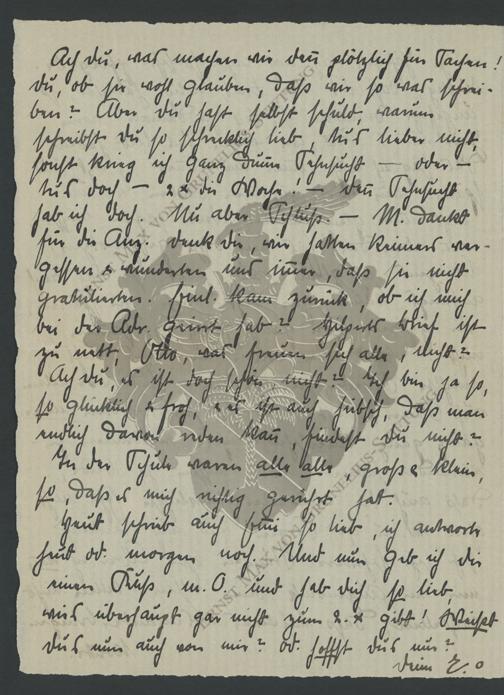 Ach du, was machen wir denn plötzlich für Sachen!
du, ob sie wohl glauben, daß wir so was schrei-
ben? Aber du hast selbst schuld, warum
schreibst du so schrecklich lieb. tus lieber nicht,
sonst krieg ich ganz dumme Sehnsucht – oder –
tus doch – 2 x die Woche! – denn Sehnsucht
hab ich doch. Nu aber Schluß. – M. dankt
für die Anz. denk dir, wir hatten Reimers ver-
gessen & wunderten uns immer, daß sie nicht
gratulierten. kam zurück, ob ich mich
bei der Adr. geirrt hab? Hilperts Brief ist
zu nett, Otto, was freuen sich alle, nicht?
Ach du, es ist doch schön nicht? Ich bin ja so,
so glücklich & froh, & es ist auch hübsch, daß man
endlich davon reden kann, findest du nicht?
In der Schule waren alle alle, große & kleine,
so, daß es mich richtig gerührt hat.
Heut schrieb auch so lieb, ich antworte
heut od. morgen noch. Und nun geb ich dir
einen Kuß, m. O. und hab dich so lieb
wies überhaupt gar nicht zum 2. x gibt! Weißt
dus nun auch von mir? od. hoffst dus nur?
dein